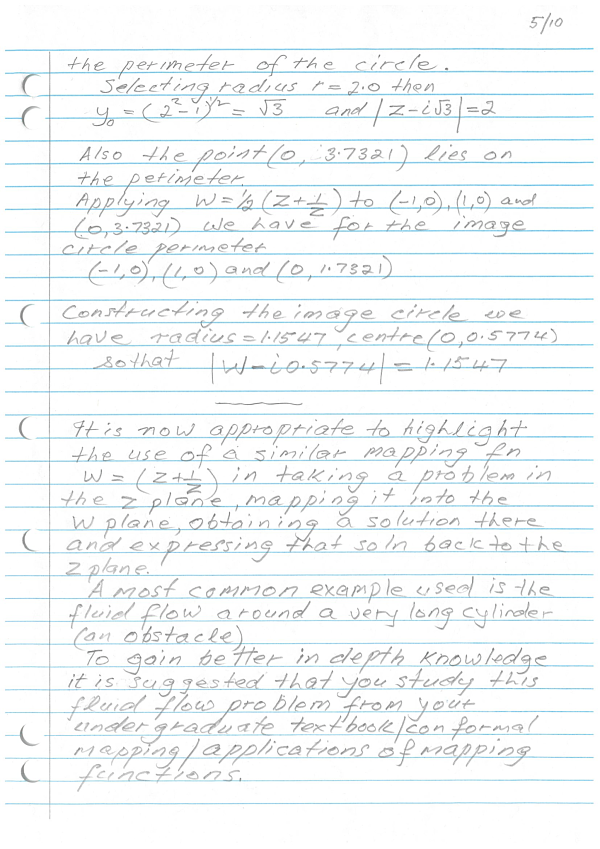 5/10
the perimeter of the circle.
Selecting radius r = 2.0 then
y₀ = (2²-1)^1/2 = √3 and |Z-i√3|=2
Also the point (0, 3.7321) lies on
the perimeter
Applying W = ½ (Z+1/Z) to (-1,0), (1,0) and
(0,3.7321) we have for the image
circle perimeter
(-1,0), (1,0) and (0, 1.7321)
Constructing the image circle we
have radius = 1.1547, centre (0,0.5774)
so that |W-i0.5774| = 1.1547
It is now appropriate to highlight
the use of a similar mapping fn
W = (Z+1/Z) in taking a problem in
the Z plane, mapping it into the
W plane, obtaining a solution there
and expressing that soln back to the
Z plane.
A most common example used is the
fluid flow around a very long cylinder
(an obstacle)
To gain better in depth knowledge
it is suggested that you study this
fluid flow problem from your
undergraduate textbook/conformal
mapping/applications of mapping
functions.